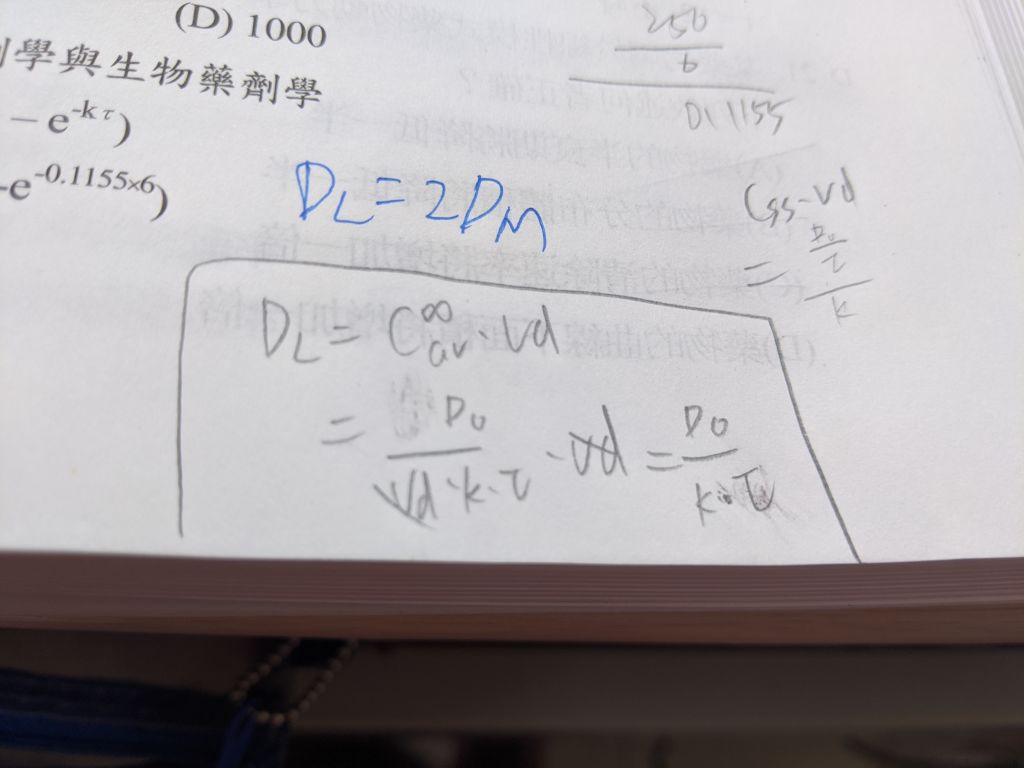 (D) 1000
學與生物藥劑學
- e^-kτ)
-e^-0.1155×6)
250
6
0.1155
D_L = 2D_M
Css·Vd
= D0/τ / k
D_L = C_av^∞ · Vd
= D0 / Vd·k·τ · Vd = D0 / k·τ